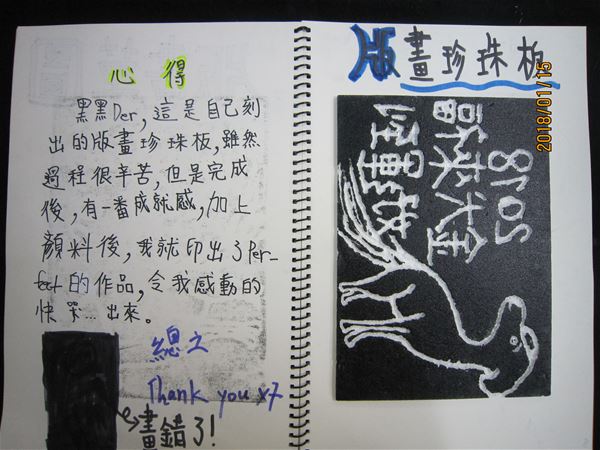 心 得
黑黑Der,這是自己刻
出的版畫珍珠板,雖然
過程很辛苦,但是完成
後,有一番成就感,加上
顏料後,我就印出了Per-
fect的作品,令我感動的
快哭...出來。
總之
Thank you x7
畫錯了!
版畫珍珠板
2018/01/15